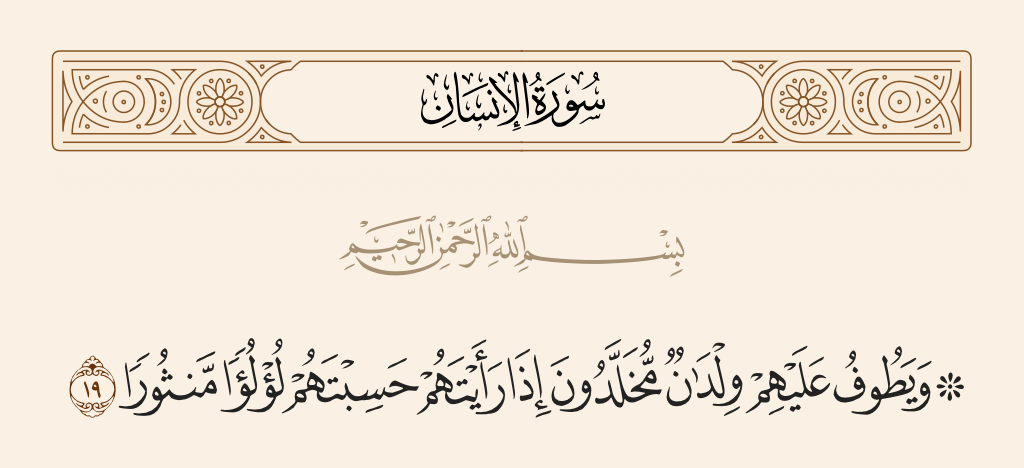 سُورَةُ الإِنسَانِ
بِسْمِ ٱللَّهِ ٱلرَّحْمَٰنِ ٱلرَّحِيمِ
۞ وَيَطُوفُ عَلَيْهِمْ وِلْدَٰنٌ مُّخَلَّدُونَ إِذَا رَأَيْتَهُمْ حَسِبْتَهُمْ لُؤْلُؤًا مَّنثُورًا ١٩